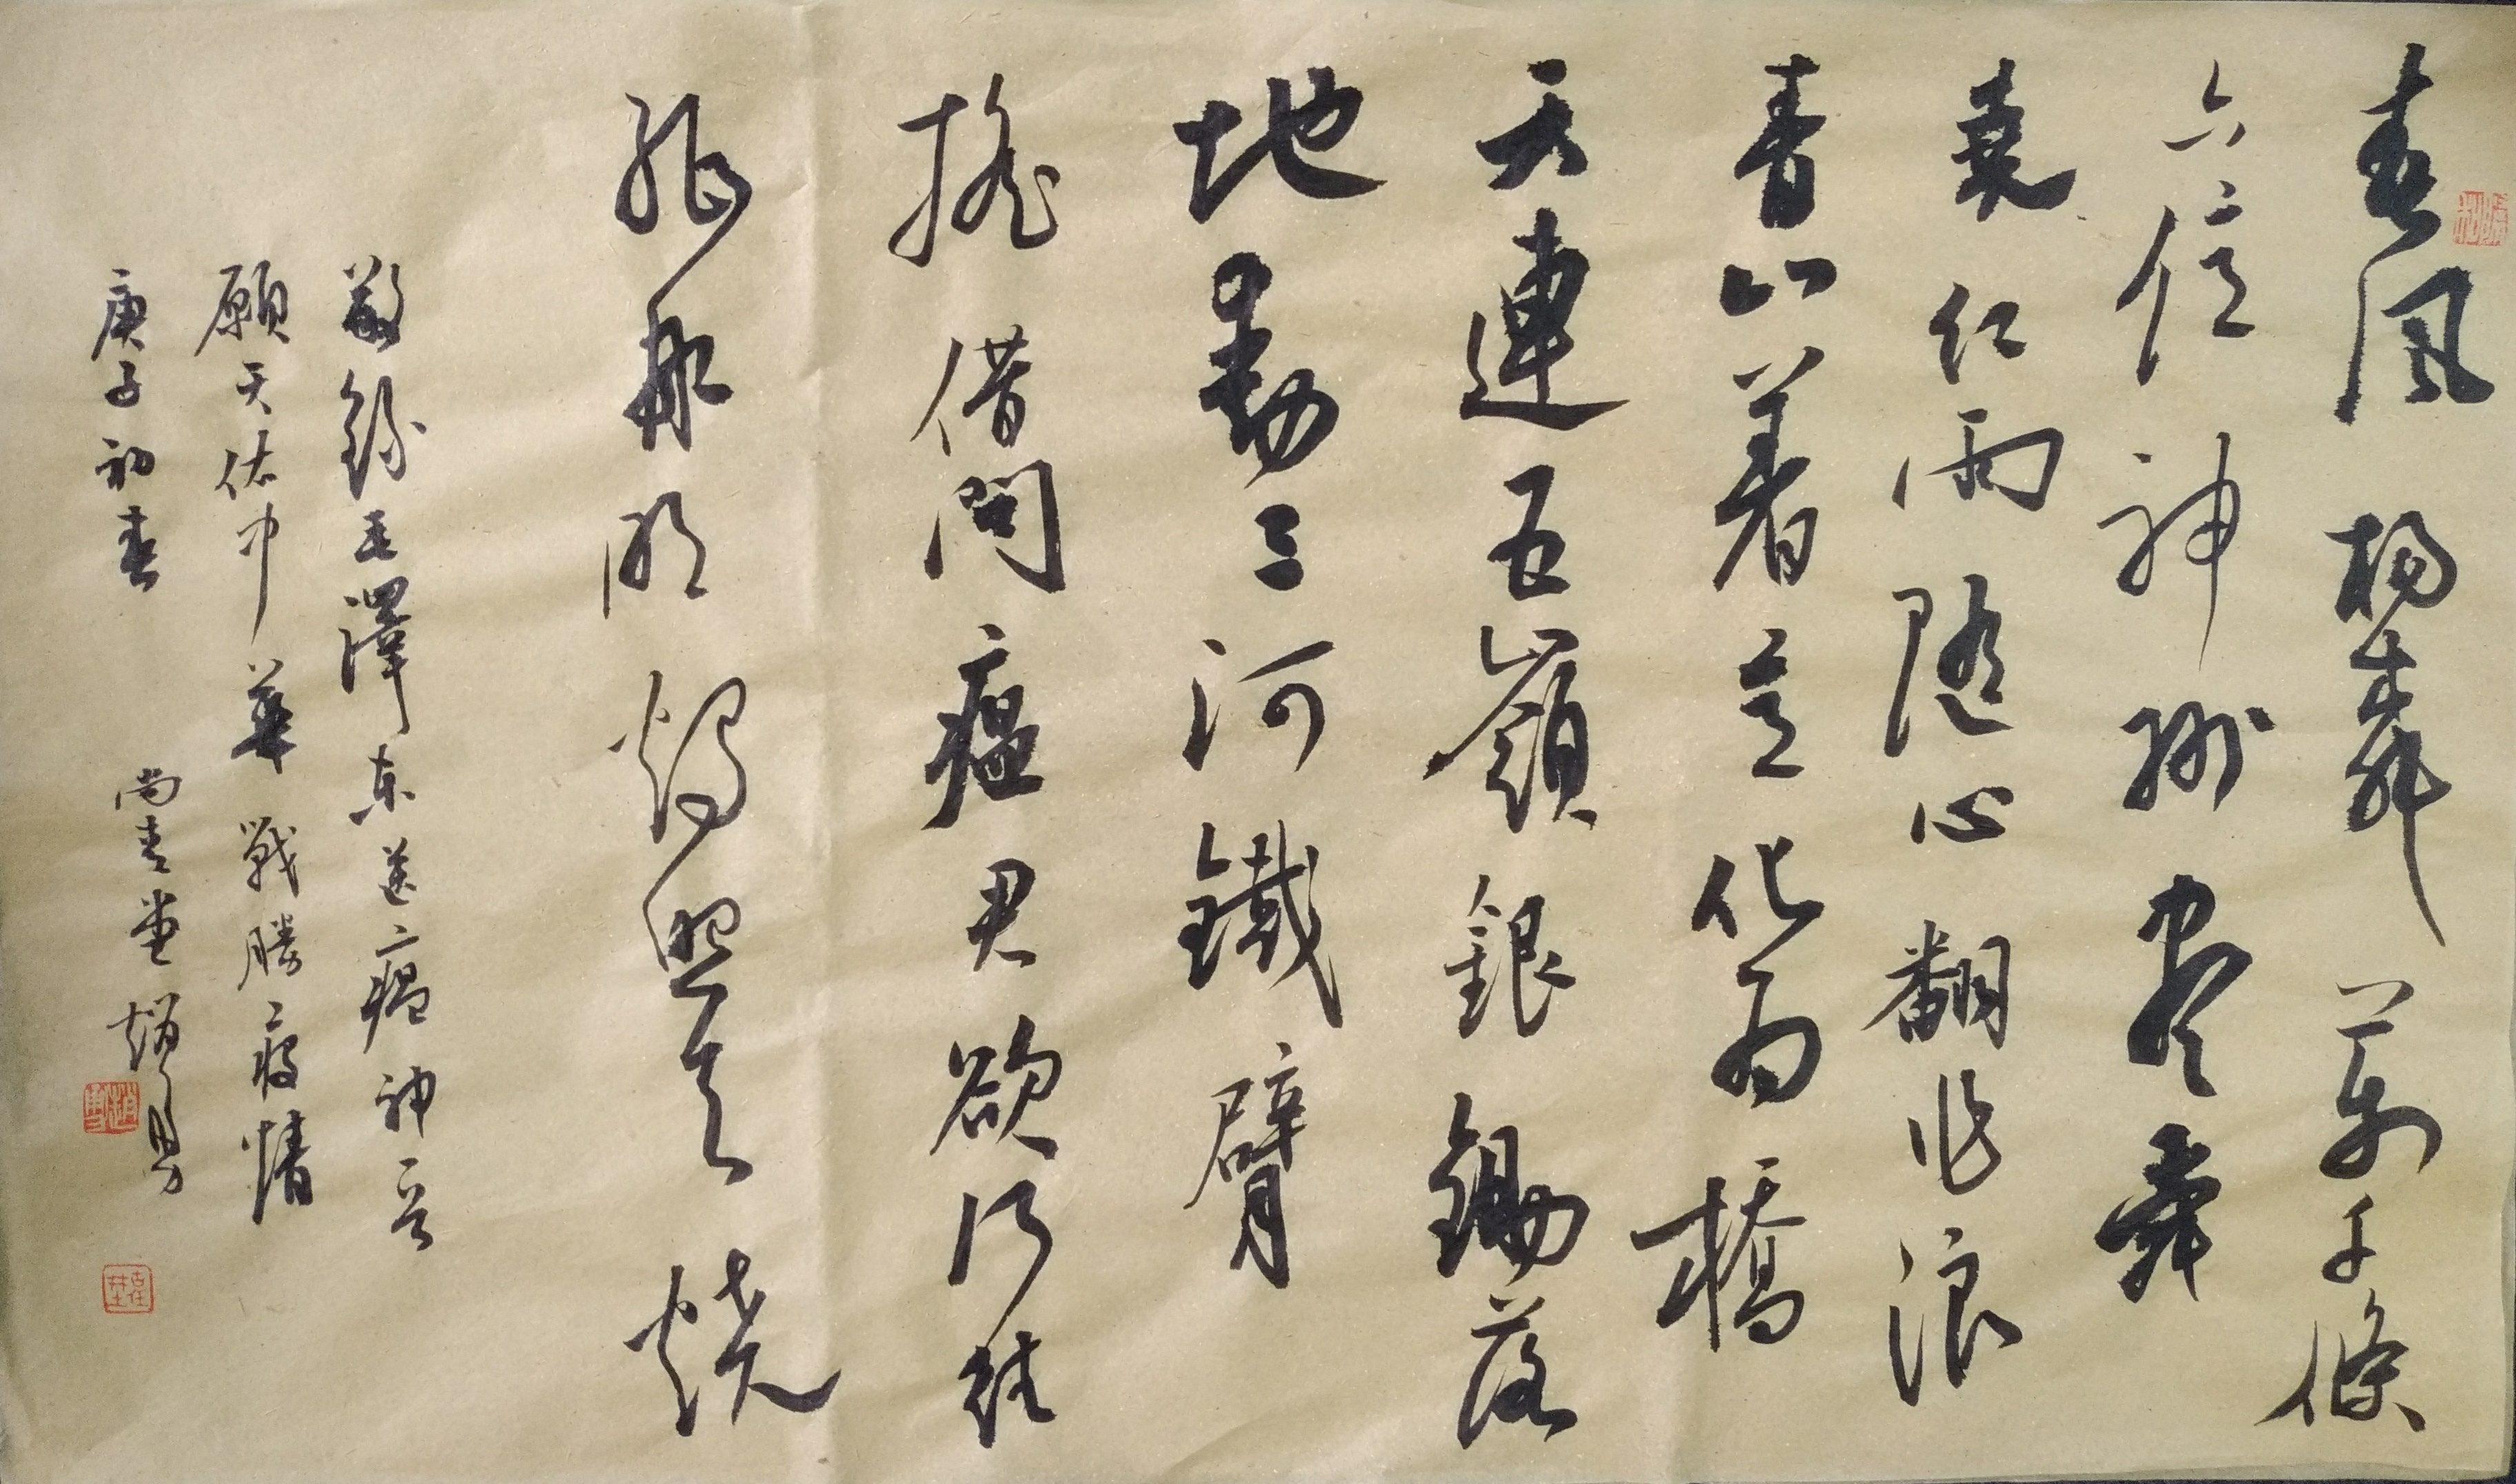 春風楊舞萬千條
六億神州盡舜
堯紅雨随心翻作浪
青山着意化為橋
天連五嶺銀鋤落
地動三河鐵臂
搖借問瘟君欲何往
紙船明燭照天燒
敬錄毛澤东送瘟神二首
願天佑中華戰勝疫情
庚子初春
尚青堂趙勇